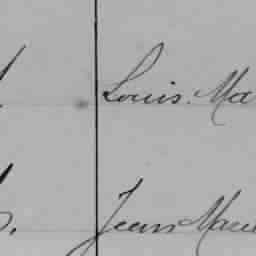 Louis. Ma
Jean Mau